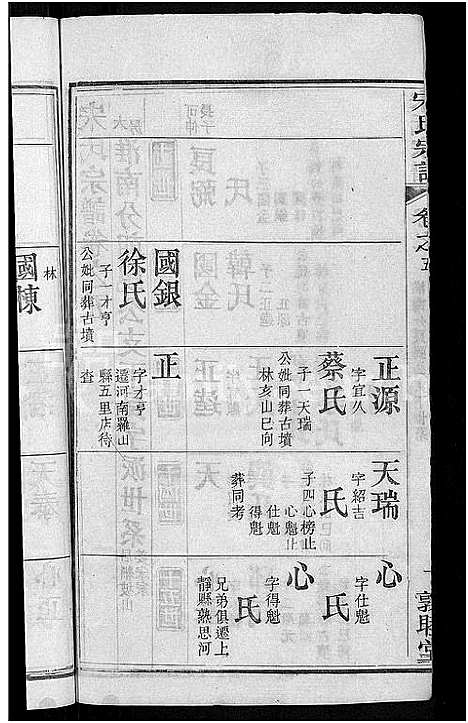 宋氏宗譜
卷之五
敦睦堂
正源
字宜久
蔡氏
子一天瑞
公妣同葬古墳
林亥山巳向
天瑞
字紹吉
氏
子四心榜止
心魁止
仕魁
得魁
葬同考
心
字仕魁
氏
心
字得魁
氏
兄弟俱遷上
靜縣熟思河
國銀
徐氏
子一才亨
公妣同葬古墳
正
字才亨
遷河南羅山
縣五里店待
查
林
國棟